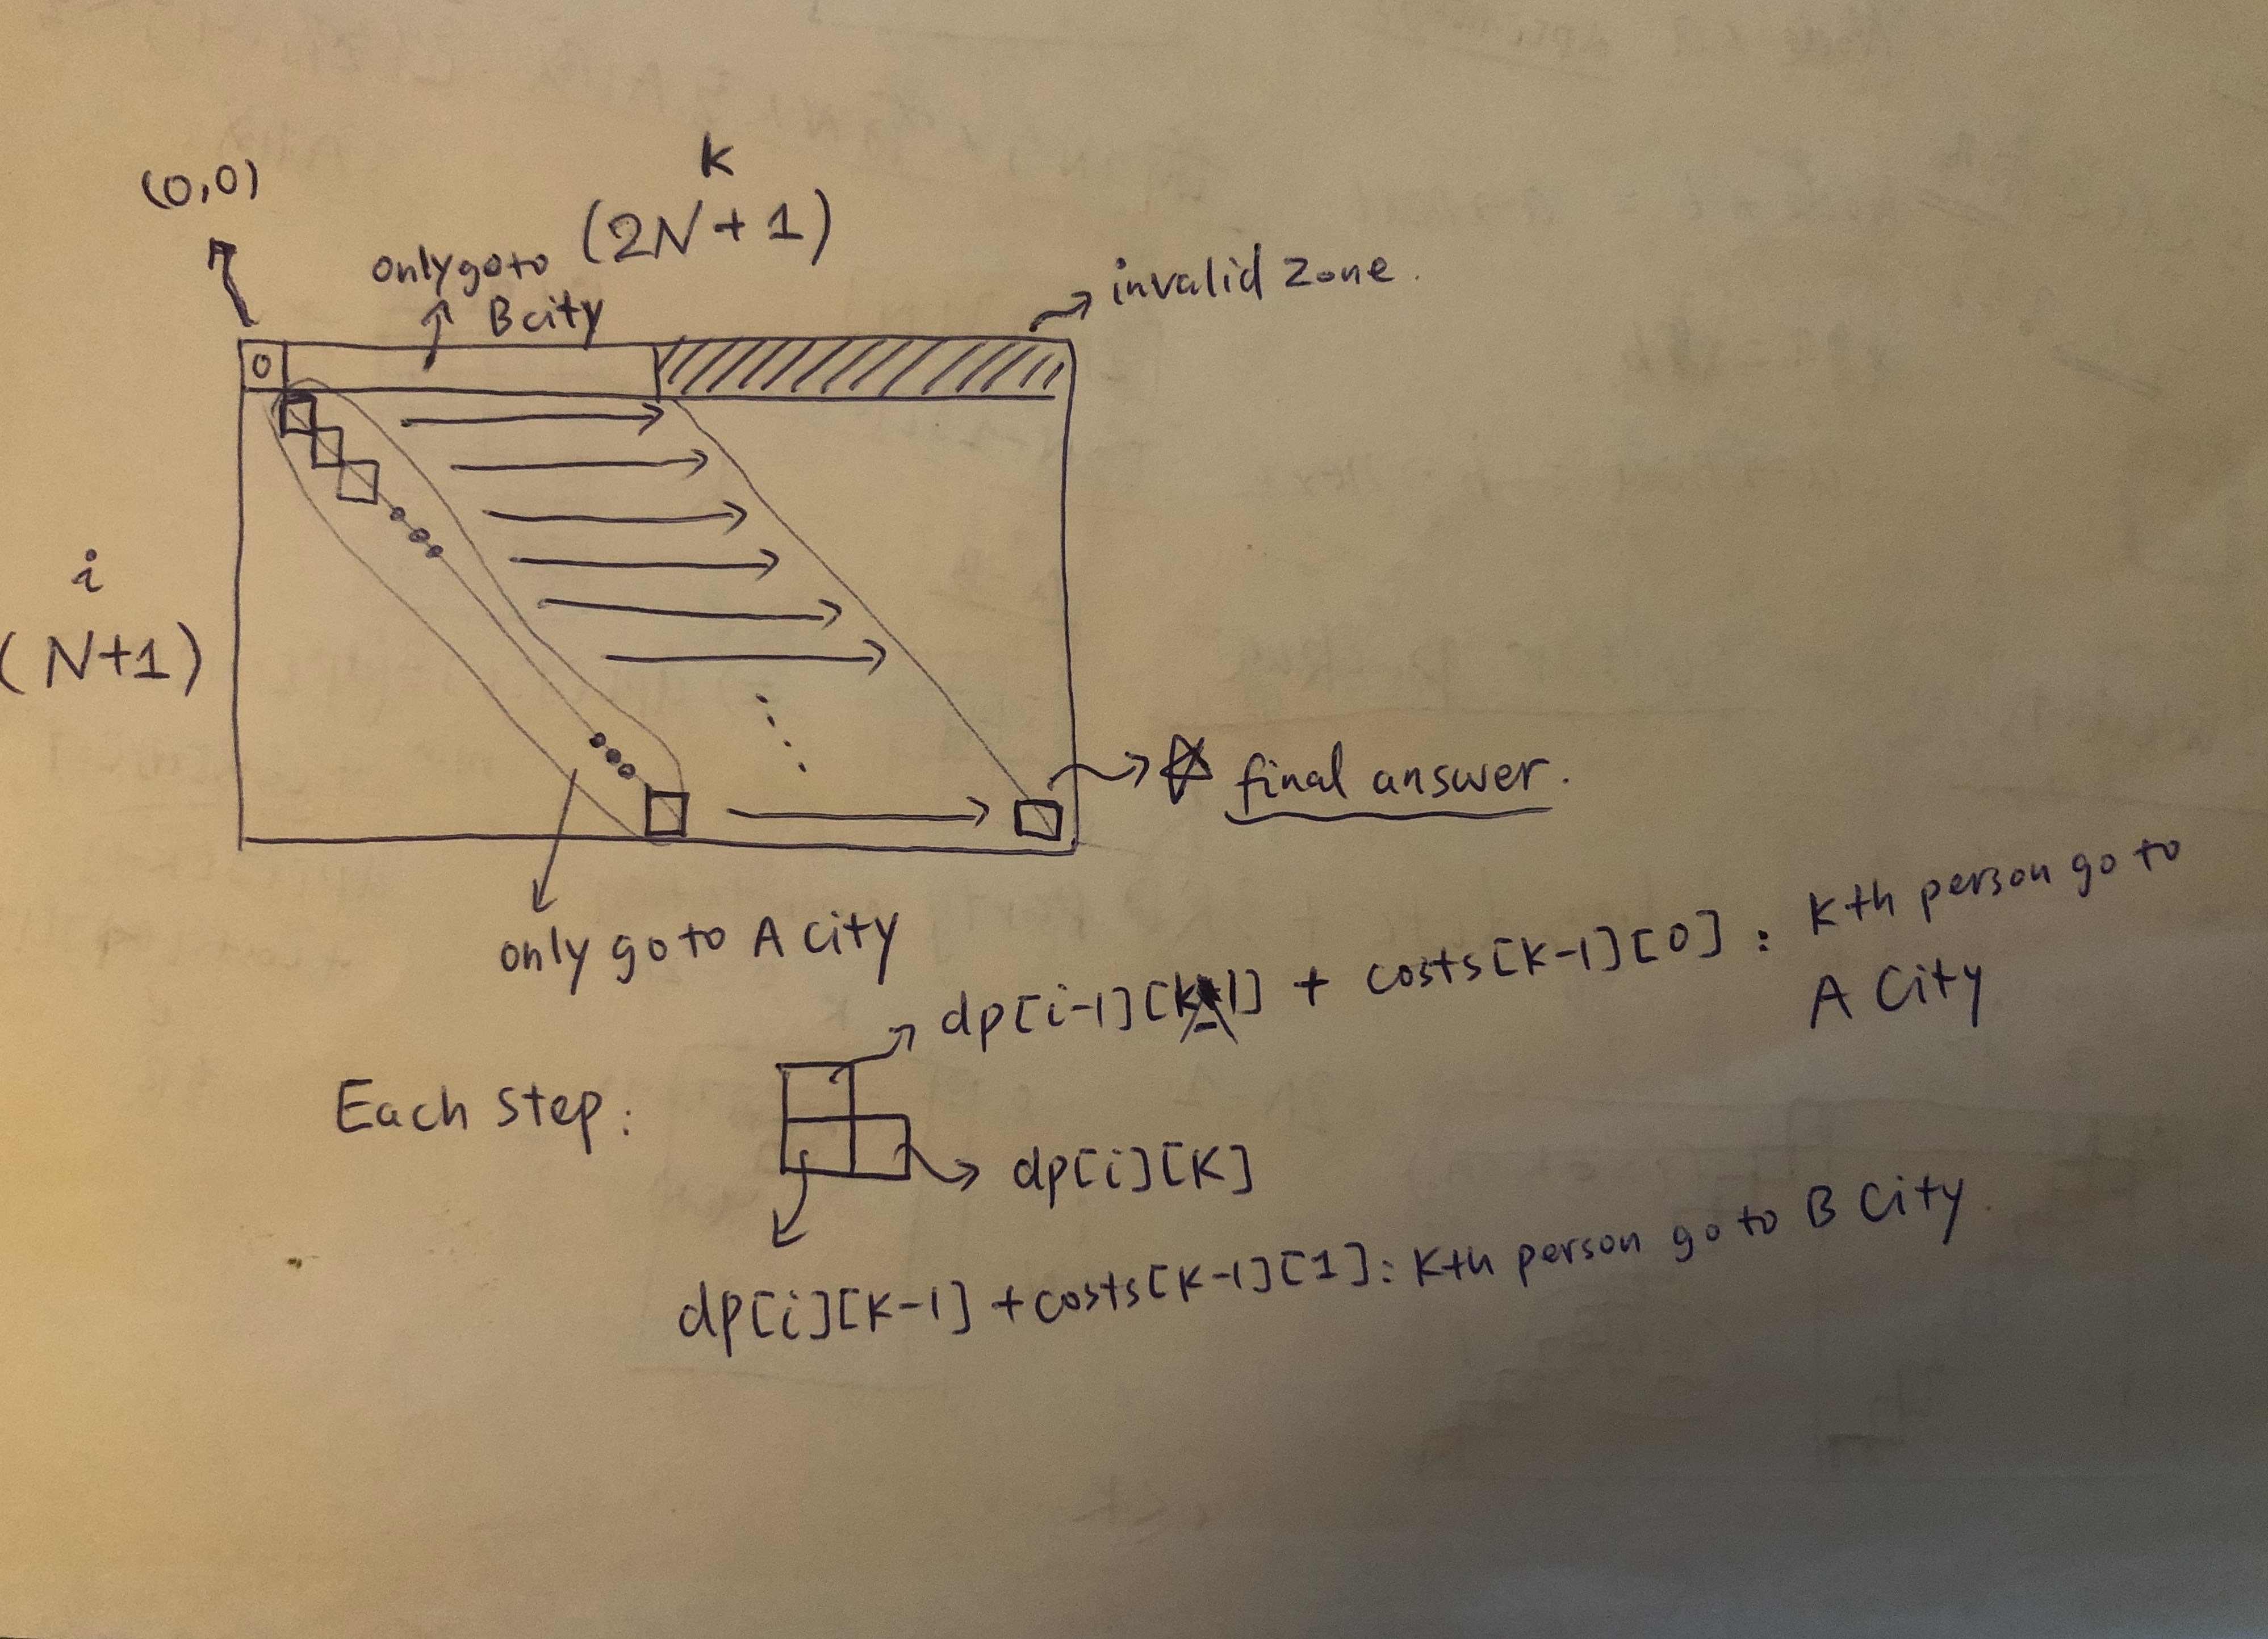 k
(0,0)
(2N+1)
only go to
B city
invalid zone.
0
i
(N+1)
final answer.
only go to A city
dp[i-1][k-1] + costs[k-1][0] : kth person go to
A City
Each step:
dp[i][k]
dp[i][k-1] + costs[k-1][1]: kth person go to B City.